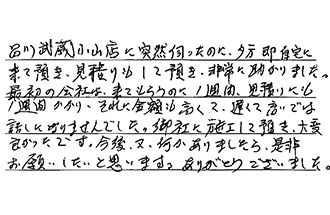 品川武蔵小山店に突然伺ったのに、夕方即自宅に
来て頂き、見積りもして頂き、非常に助かりました。
最初の会社は、来てもらうのに1週間、見積りにも
1週間かかり、それに金額も高くて、遅くて高いでは
話しになりませんでした。御社に施工して頂き、大変
良かったです。今後、又、何かありましたら、是非
お願いしたいと思います。ありがとうございました。